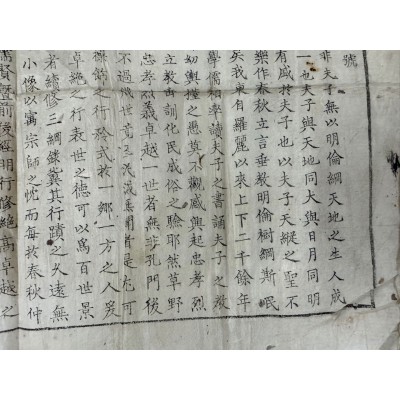 號
非夫子無以明倫綱天地之生人咸
一也夫子與天地同大與日月同明
有感於夫子也以夫子天縱之聖不
樂作春秋立言垂教明倫樹綱斯民
矣我東有羅麗以來上下二千餘年
學儒相率讀夫子之書誦夫子之教
幼與樸之愚莫不觀感興起忠孝烈
立教古訓化民成俗之驗耶然草野
忠孝烈義卓越一世者無非孔門後
不過幾世竟至泯滅無聞者是尤可
操節之行矜式於一鄉一方之人爰
卓絶之行表世之德可以爲百世景
者續修三綱錄冀其行蹟之久遠無
小像以寓宗師之忱而每於春秋仲
儒賢暨前後經明行修絶高卓越之